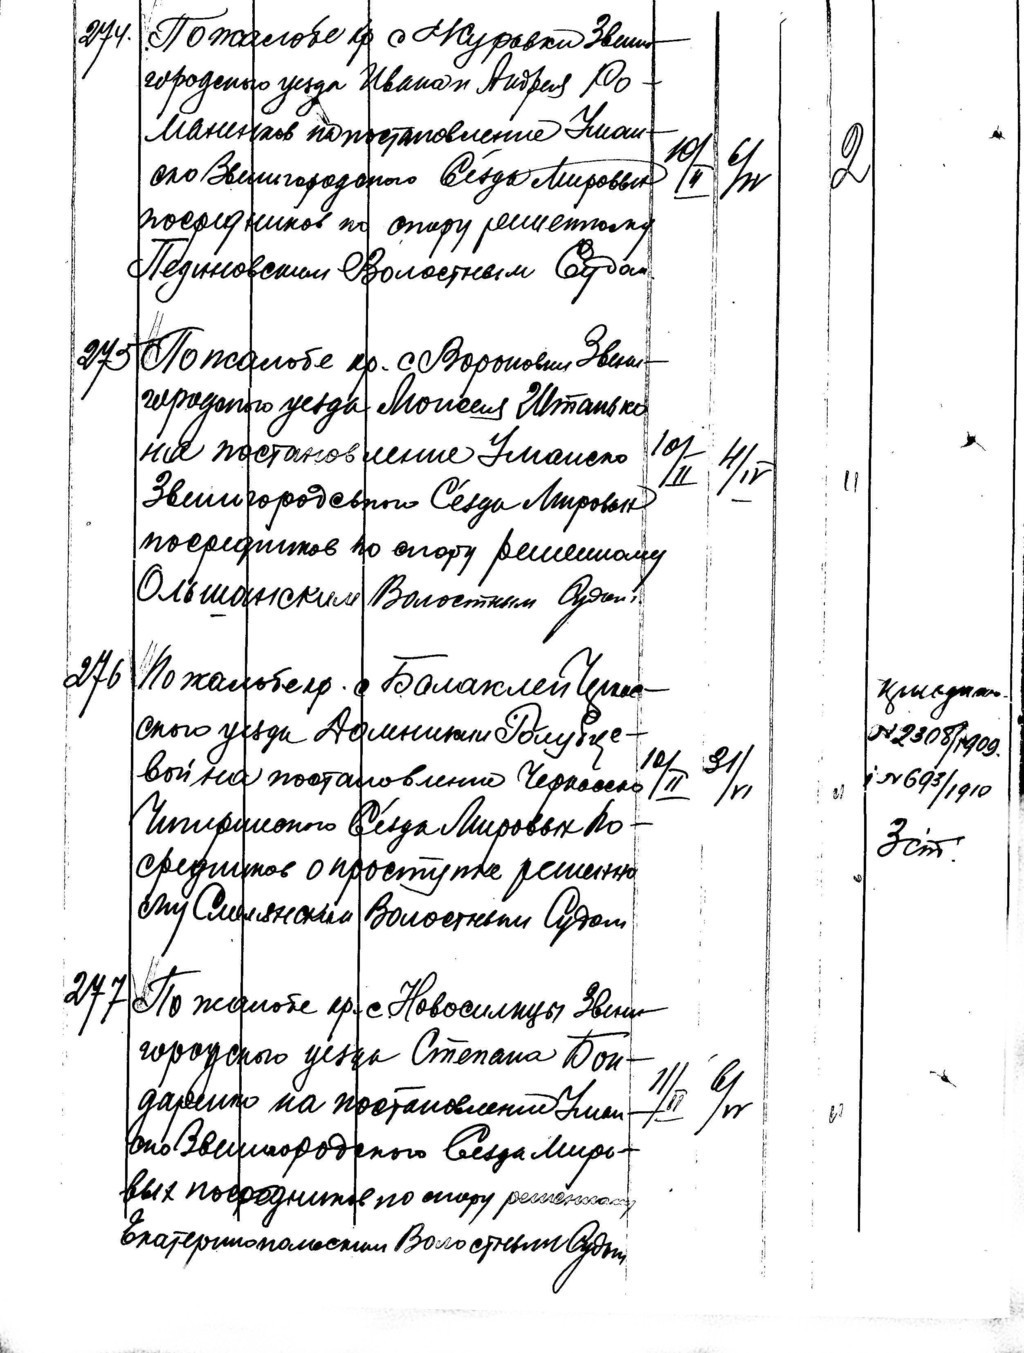 274. По жалобе кр с Журавки Звени-
городского уезда Ивана и Андрея Ро-
маненков на постановление Уман-
ско Звенигородского Сѐзда Мировых 10/II 6/IV 2
посредников по спору решенному
Волостным Судом
275 По жалобе кр. с Вороновки Звени-
городского уезда Моисея Штанько
на постановление Уманско 10/II 4/IV "
Звенигородського Сѐзда Мировых
посредников по спору решенному
Ольшанским Волостным Судом.
276 По жалобе кр. с Балаклей Черкас-
ского уезда Домникии Голубце-
вой на постановление Черкасско 10/II 31/VI "
Чигиринского Сѐзда Мировых По-
средников о проступке решенно
му Смелянским Волостным Судом
№ 2308/1909.
і № 693/1910
3 ст.
277 По жалобе кр. с Новосилицы Звени-
городского уезда Степана Бон-
даренко на постановление Уман- 11/II 6/IV "
ско Звенигородского Сезда Миро-
вых посредников по спору решенному
Екатеринопольским Волостным Судом